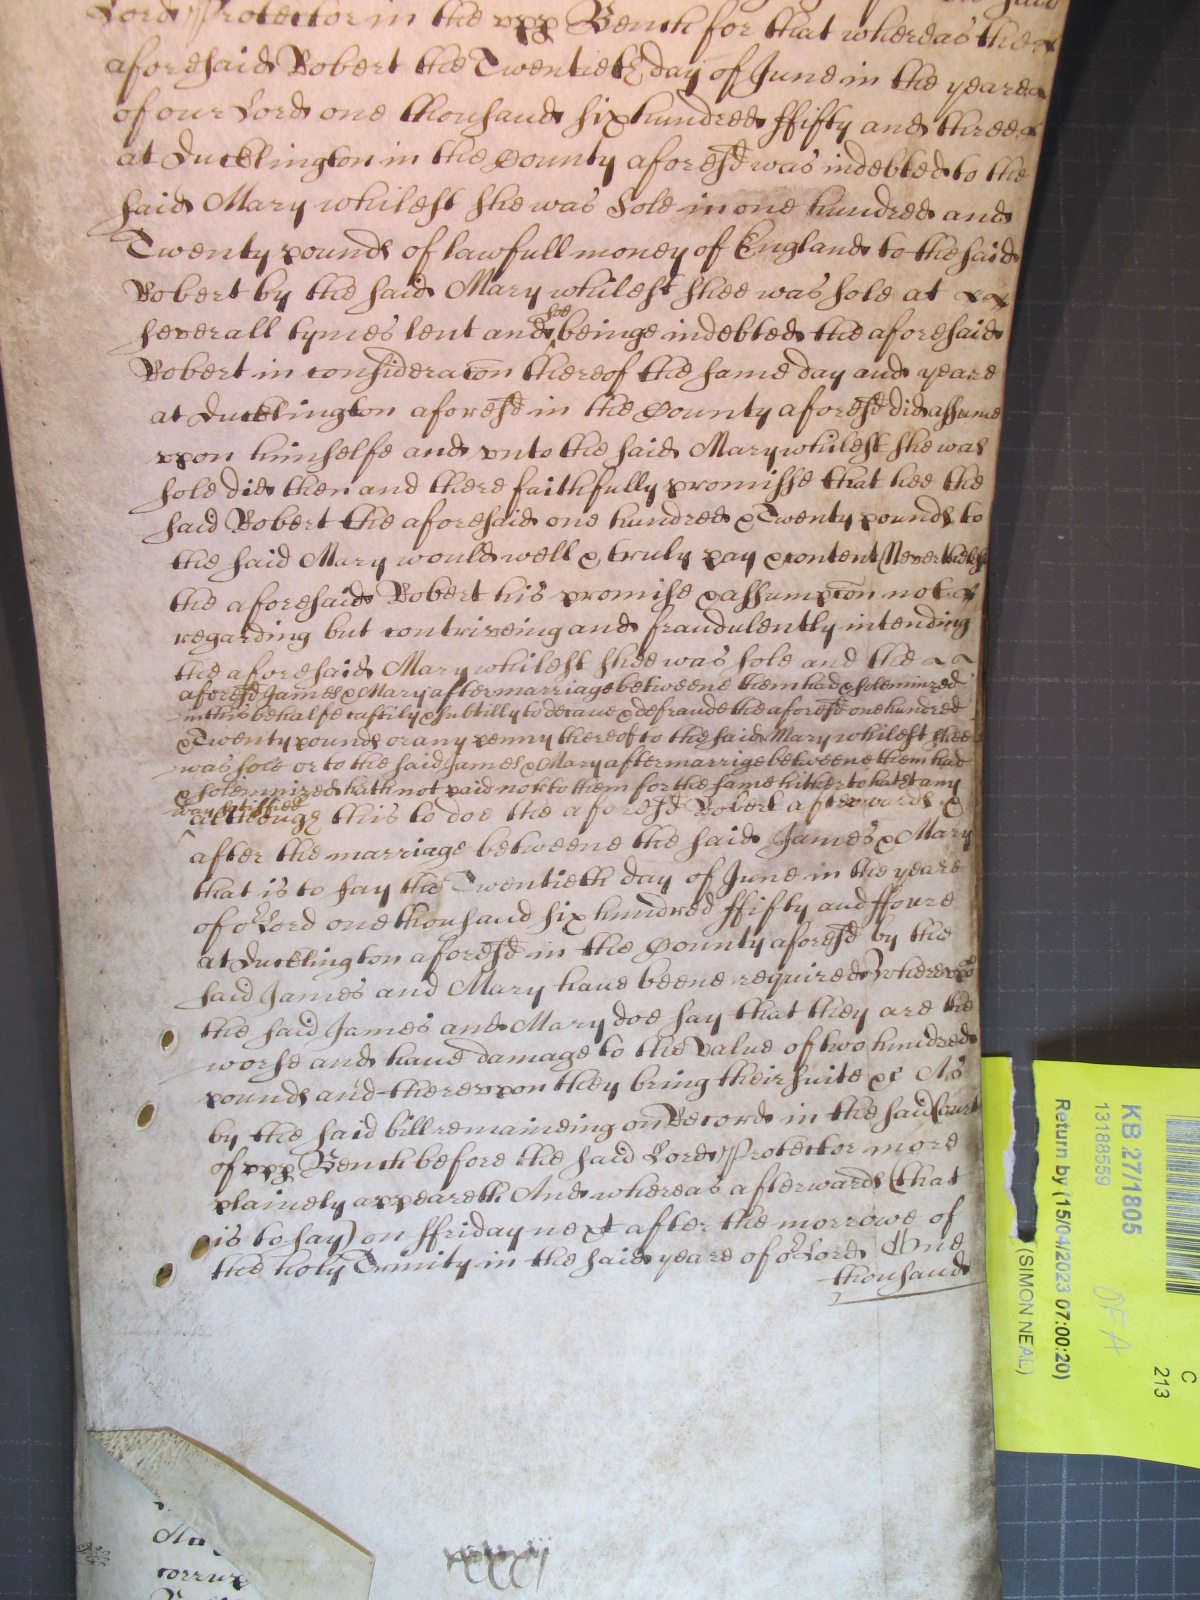 Lord Protector in the upp Bench for that whereas the
aforesaid Robert the Twentieth day of June in the yeare
of our Lord one thousand six hundred ffifty and three
at Ducklington in the County aforesd was indebted to the
said Mary whilest she was Sole in one hundred and
Twenty pounds of lawfull money of England to the said
Robert by the said Mary whilest shee was sole at
severall tymes lent and soe beinge indebted the aforesaid
Robert in consideracon thereof the same day and yeare
at Ducklington aforesd in the County aforesd did assume
upon himselfe and unto the said Mary whilest she was
sole did then and there faithfully promisse that hee the
said Robert the aforesaid one hundred & Twenty pounds to
the said Mary would well & truly pay & content Neverthelesse
the aforesaid Robert his promise & assumpcon not
regarding but contriveing and fraudulently intending
the aforesaid Mary whilest shee was sole and the
aforesd James & Mary after marriage betweene them had & solemnized
in this behalfe craftily & subtilly to deceave & defraude the aforesd one hundred
& Twenty pounds or any penny thereof to the said Mary whilest shee
was sole or to the said James & Mary after marrige betweene them had
& solemnized hath not paid nor to them for the same hitherto hath any
way satisfied
although this to doe the aforesd Robert afterwards &
after the marriage betweene the said James & Mary
that is to say the Twentieth day of June in the yeare
of or Lord one thousand six hundred ffifty and ffoure
at Ducklington aforesd in the County aforesd by the
said James and Mary have beene required Whereupon
the said James and Mary doe say that they are the
worse and have damage to the value of two hundred
pounds and thereupon they bring their suite &c As
by the said bill remaineing on Record in the said Court
of upp Bench before the said Lord Protector more
plainely appeareth And whereas afterwards (that
is to say) on ffriday next after the morrowe of
the holy Trinity in the said yeare of or Lord One
thousand
KB 27/1805
13188559
Return by (15/04/2023 07:00:20)
(SIMON NEAL)
OFA
C
213